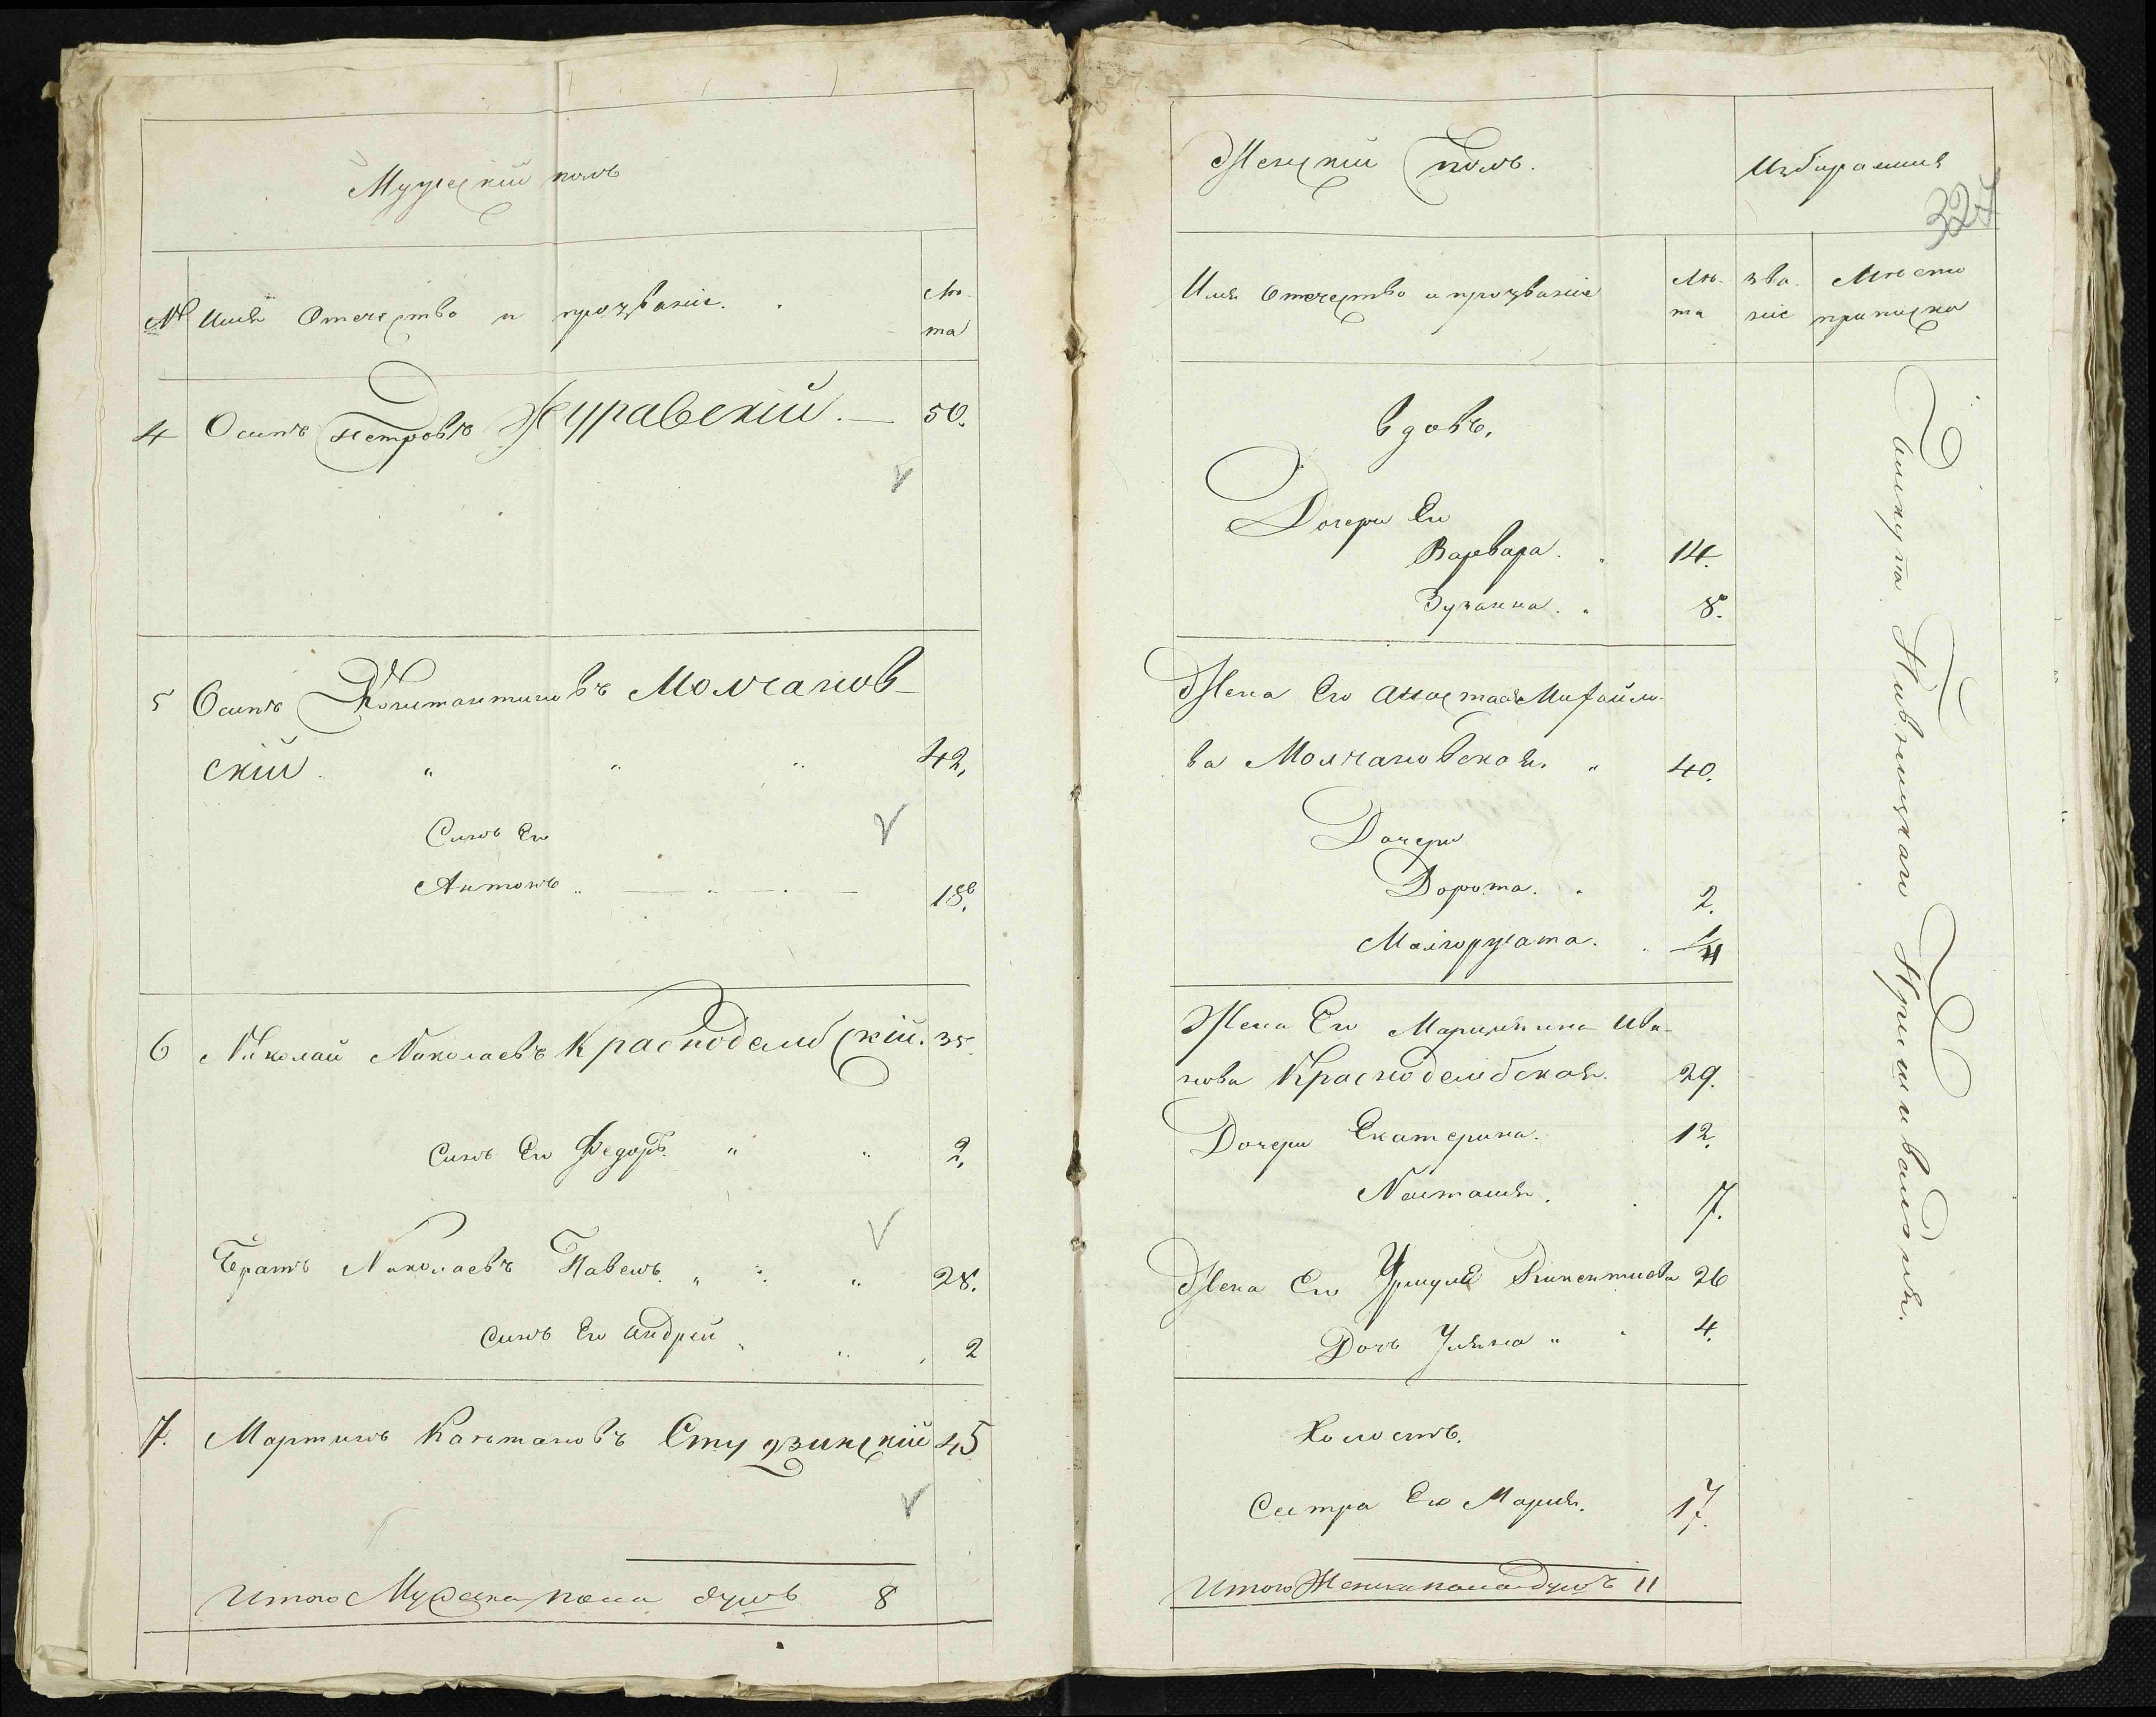 Мужескiй полъ
№ Имя Отечество и прозванiе.
Лѣ-
та
4 Осипъ Петровъ Журавскiй. — 50.
5 Осипъ Константиновъ Молчанов-
скiй. " " " 42,
Сынъ Его
Антонъ " — " — . — 18.
6 Николай Николаевъ Красnodембскiй. 35.
Сынъ Его Федоръ. " " 2,
Братъ Николаевъ Павелъ. " " " 28.
Сынъ Его Андрей " " , 2
7. Мартинъ Каэтановъ Студзинскiй 45
Итого Мужеска пола душъ 8
Женскiй полъ.
Избиранiя
327
Имя Отечество и прозванiе
Лѣ-
та
зва.
нiе
Мѣсто
приписка
вдовъ.
Дочери Его
Варвара. . 14.
Зузанна. . 8.
Жена Его Анастасiя Михайло-
ва Молчановская. " 40.
Дочери
Дорота. . 2.
Малгоржата. . 1/4
Жена Его Марцiянна Ива-
нова Краснодембская. 29.
Дочери Екатерина. 12.
Насташя. . 7.
Жена Его Урщуля Викентiева 26
Дочь Уляна " " 4.
Холостъ.
Сестра Его Марiя. 17.
Итого Женска пола душъ 11